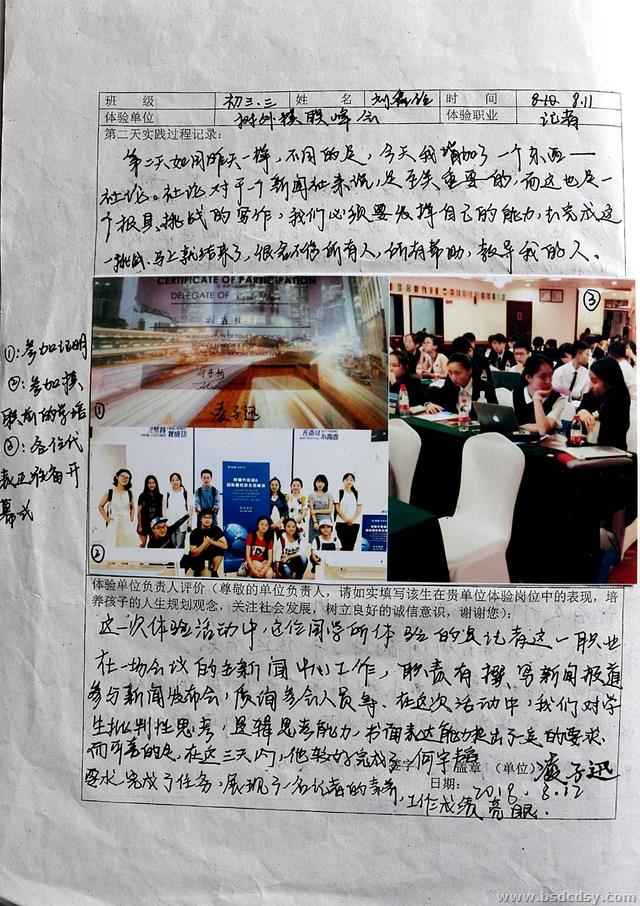 班 级 初三.三 姓 名 刘鑫 时 间 8.10 8.11
体验单位 树外模联峰会 体验职业 记者
第二天实践过程记录:
第二天如同昨天一样，不同的是，今天我增加了一个东西——
社论。社论对于一个新闻社来说，是至关重要的，而这也是一
个极具挑战的写作，我们必须要发挥自己的能力，去完成这
一挑战、马上就结束了，很舍不得所有人，所有帮助，教导我的人。
①:参加证明
②:参加模
联所的学语
③:各位代
表正准备开
幕式
CERTIFICATE OF PARTICIPATION
DELEGATE OF
刘鑫
凌子迅
①
坚持
我成功
无奋斗
不青春
树德外国语&
国际模拟联合国峰会
②
③
体验单位负责人评价（尊敬的单位负责人，请如实填写该生在贵单位体验岗位中的表现，培
养孩子的人生规划观念，关注社会发展，树立良好的诚信意识，谢谢您）:
这一次体验活动中，这位同学所体验的是记者这一职业
在一场会议的主新闻中心工作，职责有撰写新闻报道
参与新闻发布会，质询参会人员等。在这次活动中，我们对学
生批判性思考，逻辑思考能力，书面表达能力提出了一定的要求.
而可喜的是，在这三天内，他较好完成了
签字 何宇韬 盖章 （单位） 凌子迅
要求完成了任务，展现了一名记者的素养，工作成绩亮眼.
日期: 2018.8.12
www.bsdcdsy.com